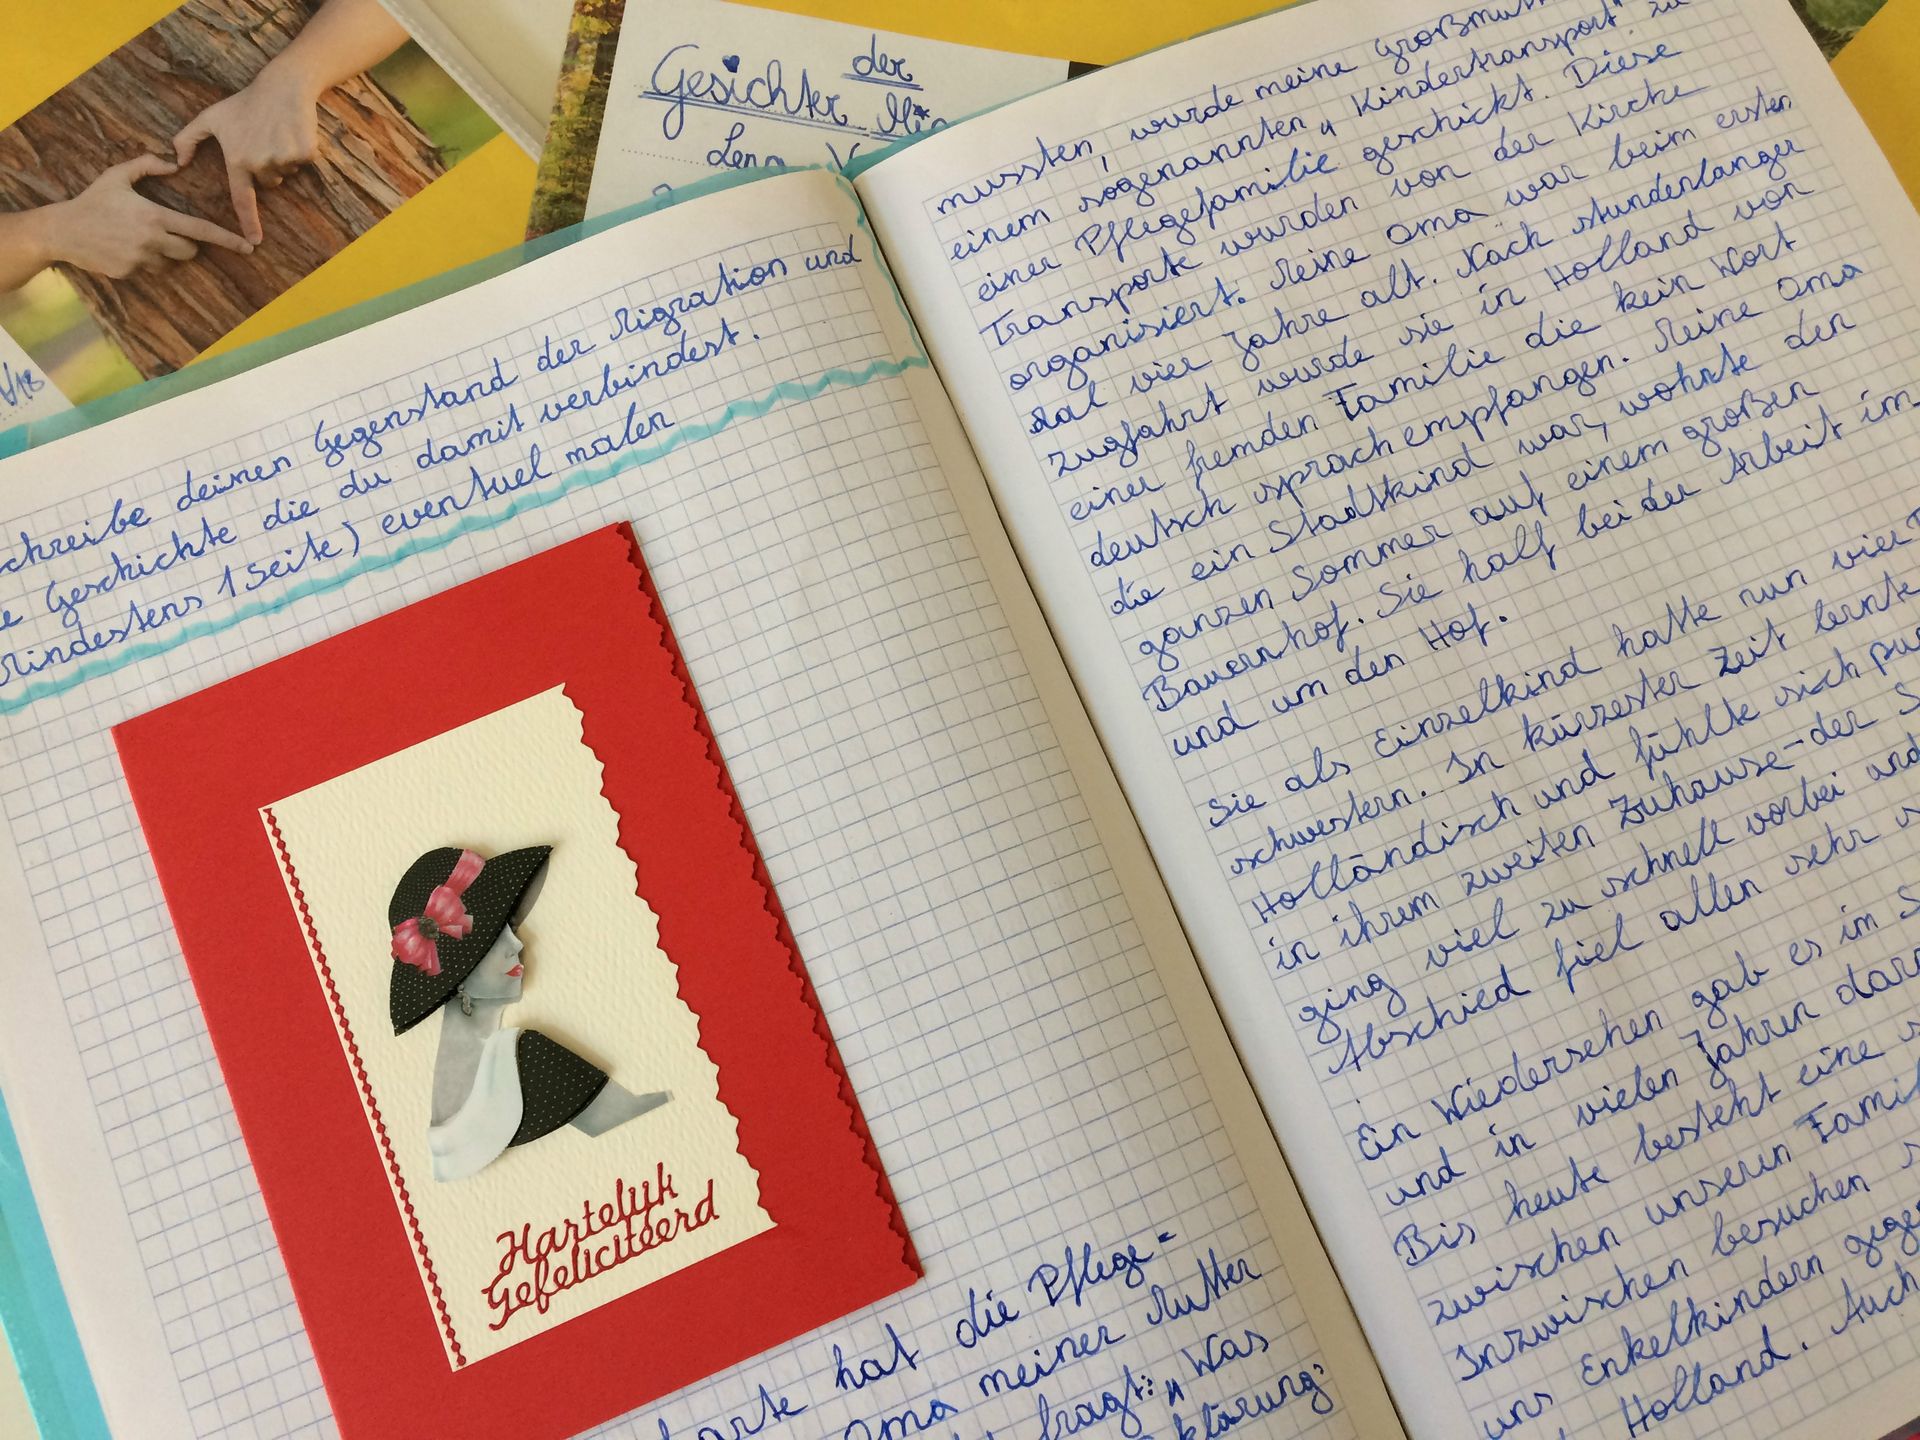 der
Gesichter Mig
Lena
1/18
schreibe deinen Gegenstand der Migration und
e Geschichte die du damit verbindest.
Mindestens 1 Seite) eventuel malen
Hartelijk
Gefeliciteerd
arte hat die Pflege=
Oma meiner Mutter
fragt: „Was
klärung
mussten, wurde meine Großmutt
einem sogenannten „Kindertransport" zu
einer Pflegefamilie geschickt. Diese
Transporte wurden von der Kirche
organisiert. Meine Oma war beim ersten
Mal vier Jahre alt. Nach stundenlanger
Zugfahrt wurde sie in Holland von
einer fremden Familie die kein Wort
deutsch sprach empfangen. Meine Oma
die ein Stadtkind war, wohnte den
ganzen Sommer auf einem großen
Bauernhof. Sie half bei der Arbeit im
und um den Hof.
Sie als Einzelkind hatte nun vier
schwestern. In kürzester Zeit lernte
Holländisch und fühlte sich pu
in ihrem zweiten Zuhause - der S
ging viel zu schnell vorbei und
Abschied fiel allen sehr s
Ein Wiedersehen gab es im S
und in vielen Jahren dar
Bis heute besteht eine s
zwischen unseren Famil
Inzwischen besuchen
uns Enkelkindern gege
Holland. Auch